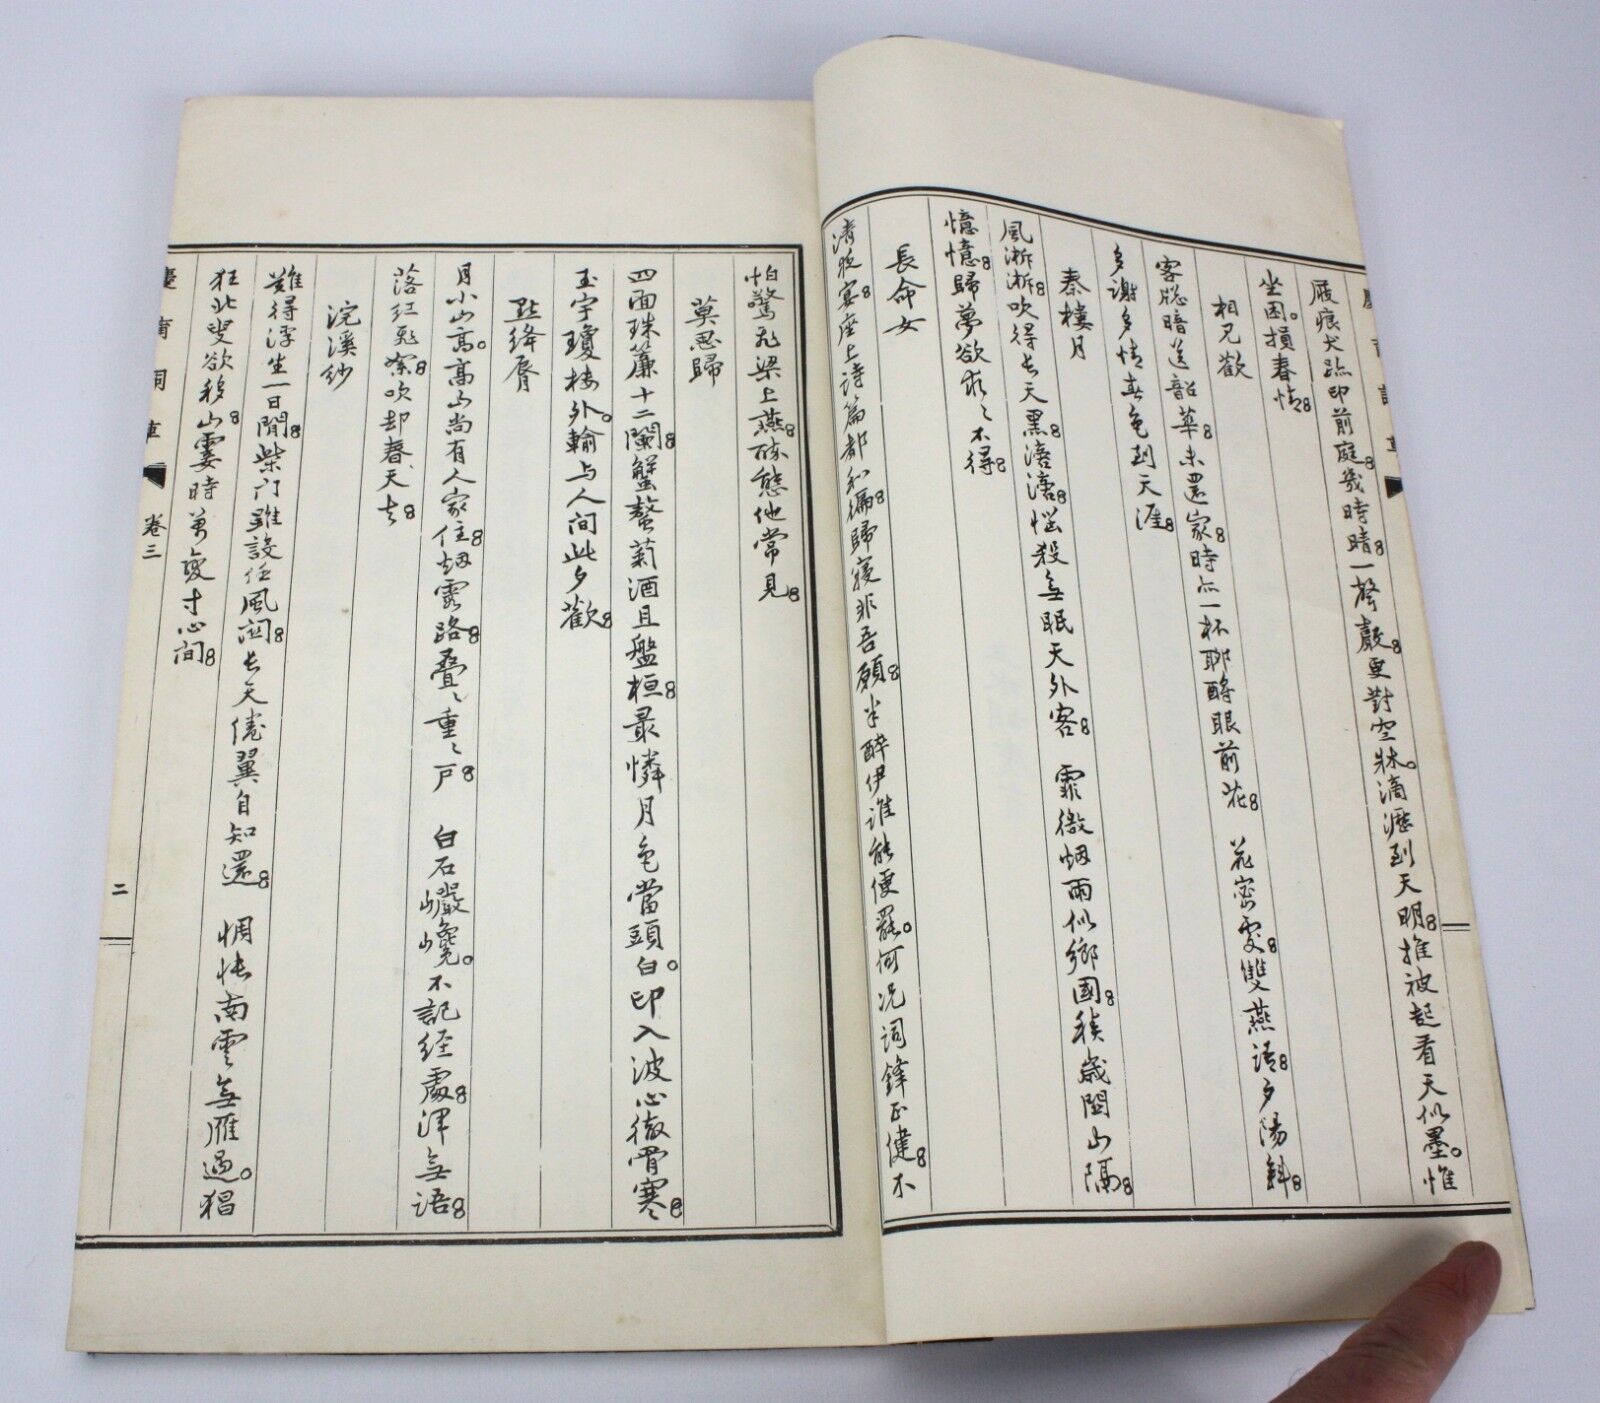 屐痕犬跡印前庭幾時晴一聲嚴更對空牀滴瀝到天明推被起看天似墨惟
坐困損春情
相見歡
客窓暗送韶華未還家時亦一杯聊酹眼前花 花密處雙燕語夕陽斜
多謝多情春色到天涯
秦樓月
風淅淅吹得長天黑濇濇惱殺無眠天外客 霏微烟雨似鄉國積歲關山隔
憶憶歸夢欲求求不得
長命女
清夜宴座上詩篇都和徧歸寢非吾願半醉伊誰能便罷何況詞鋒正健不
怕驚飛梁上燕酔態他常見
莫思歸
四面珠簾十二闌蟹螯菊酒且盤桓最憐月色當頭白印入波心徹骨寒
玉宇瓊樓外輸与人间此夕歡
點絳脣
月小山高高山尚有人家住烟雲路疊疊重重戶 白石巉巖不記經處渾無語
落紅飛絮吹却春天去
浣溪紗
難得浮生一日閒柴门雖設任風関長天倦翼自知還 惆悵南雲無雁過猖
狂北叟欲移山霎時萬變寸心间
卷三
二